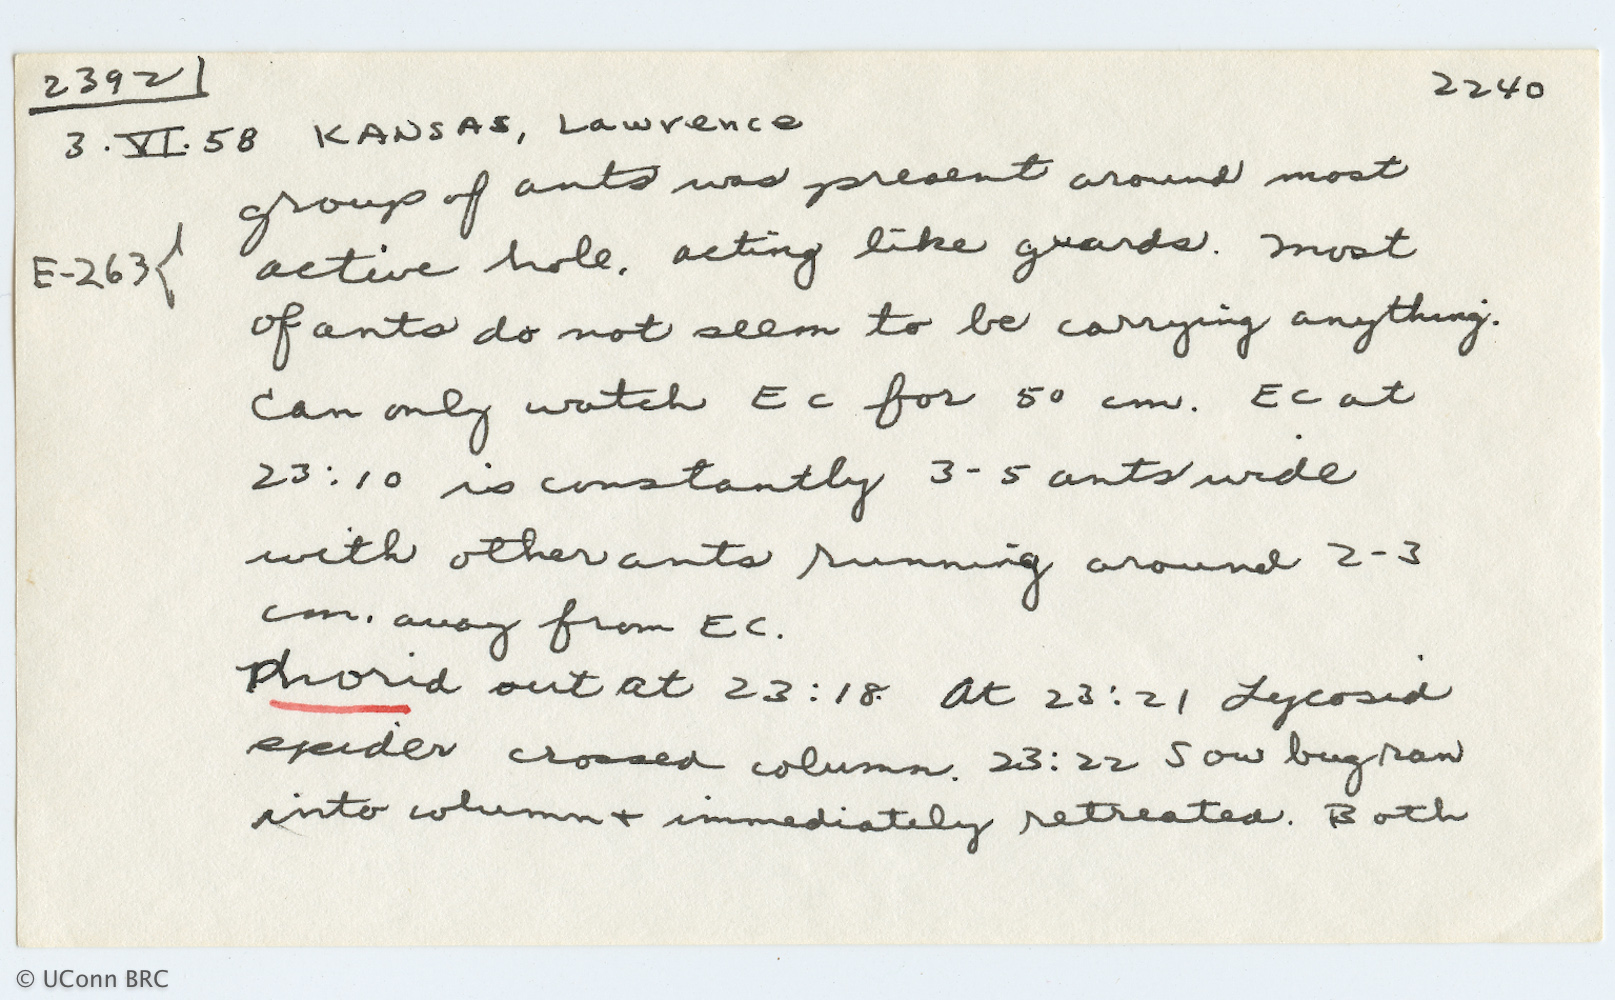 2392
2240
3.VI.58 KANSAS, Lawrence
group of ants was present around most
E-263{ active hole, acting like guards. Most
of ants do not seem to be carrying anything.
Can only watch EC for 50 cm. EC at
23:10 is constantly 3-5 ants wide
with other ants running around 2-3
cm. away from EC.
Phorid out at 23:18. At 23:21 Lycosid
spider crossed column. 23:22 Sow bug ran
into column + immediately retreated. Both
© UConn BRC